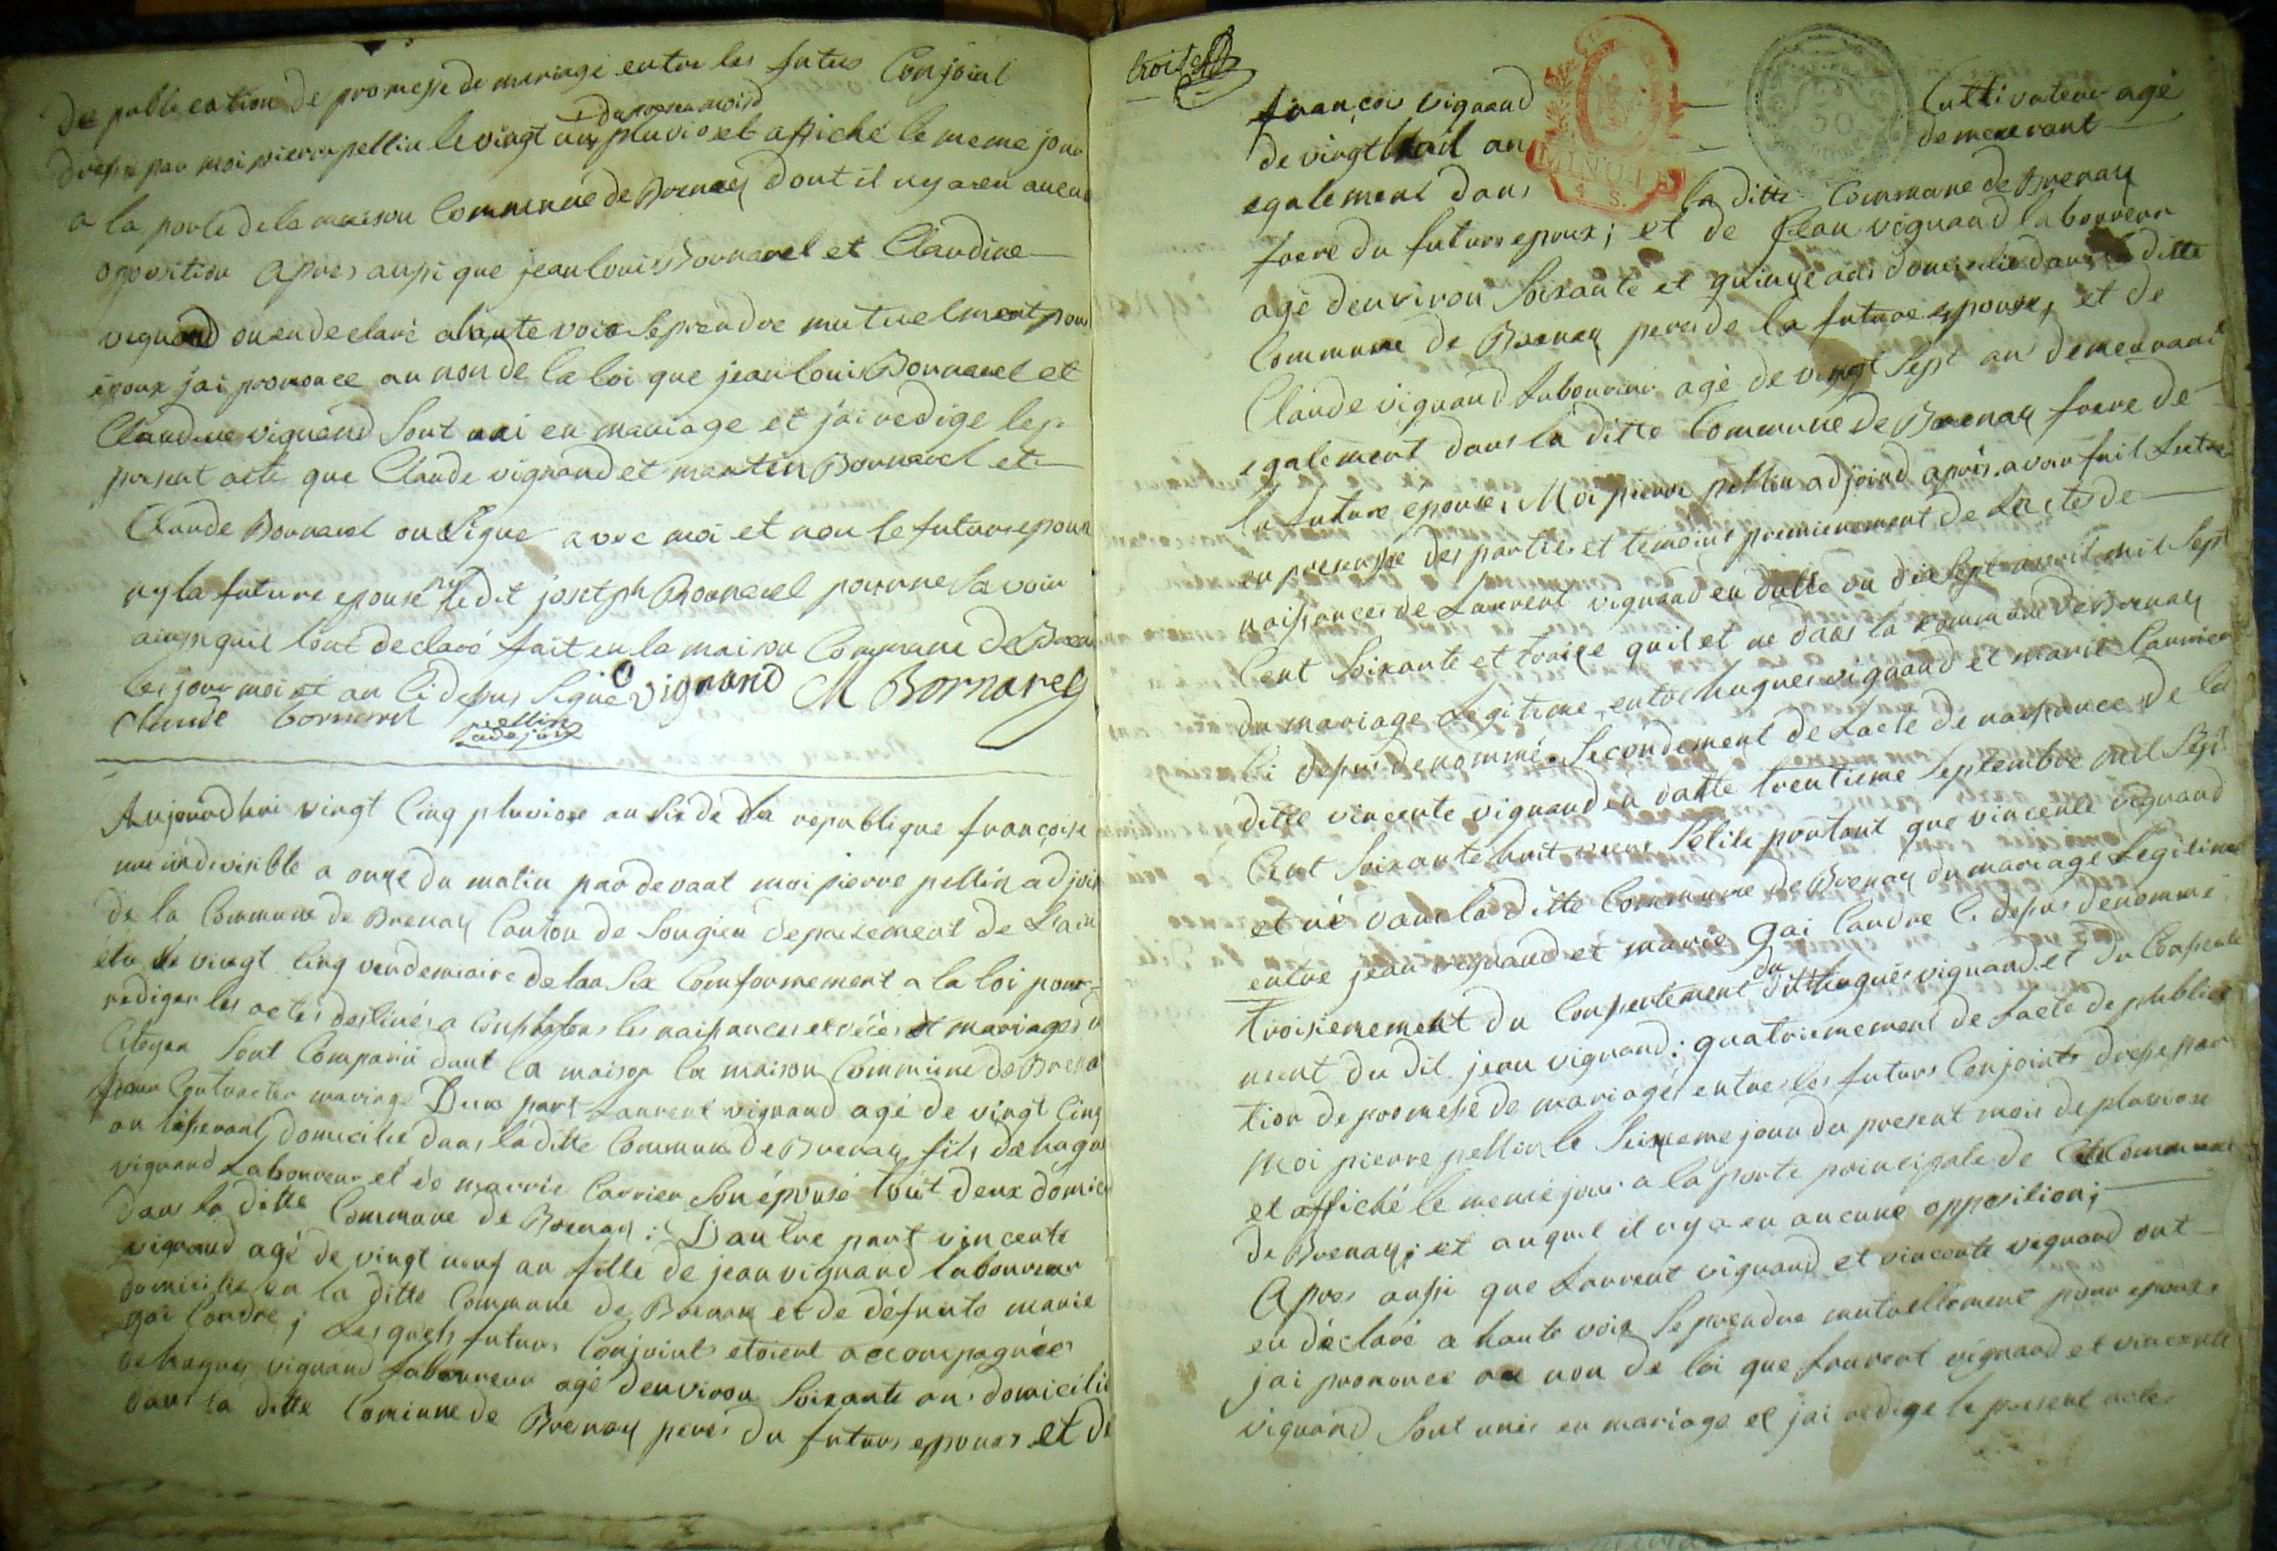 de publication de promesse de mariage entre les futus Conjoint
dresse par moi pierre pellin le vingt un du present mois pluviose et affiché le meme jour
a la porte de la maison Commune de Brenay dont il ny a eu aucun
oposition apres aussi que jean louis Bornarel et Claudine
vignand on en declaré a haute voix se prendre mutuelment pour
époux j'ai prononce au non de la loi que jean louis Bornarel et
Claudine vignand Sont uni en mariage et j'ai redige le p
present acte que Claude vignand et martin Bornarel et
Claude Bornarel on Signe avec moi et non le futur epoux
ny la future epouse ny le dit joseph Bornarel pour ne savoir
ainsy quil lont declaré fait en la maison Commune de Bren
les jour moi et an Ci desus Signé C vignand M Bornarel
Claude bornarel pellin adejoin
Aujourdhui vingt Cinq pluviose an Six de la republique françoise
une indivisible a onze du matin par devant moi pierre pellin adjoin
de la Commune de Brenay Canton de Songieu departement de Lain
élu le vingt Cinq vendemiaire de lan Six Comformement a la loi pour
rediger les actes destinés a Constater les naissances et décès et mariages
Citoyen Sont Comparu dant la maison la maison Commune de Brena
pour Contracter mariage Dune part Laurent vignand agé de vingt Cinq
an tisserant domicilié dans la ditte Commune de Brenay fils de hugue
vignand Laboureur et de marrie Carrier Son épouse tout deux domici
dans la ditte Commune de Brenay ; Dautre part vincente
vignand agé de vingt neuf an fille de jean vignand laboureur
domicilie en la ditte Commune de Brenay et de défunte marie
gai landre ; Les quels futurs Conjoints etoient accompagnées
de hugues vignand laboureur agé denviron Soixante ans domicilié
dans la ditte Comune de Brenay peres du futurs epouxs et de
troise
françois vignand Cultivateur agé
de vingt huit an demeurant
egalement dans la ditte Commune de Brenay
frere du futurs epoux ; et de jean vignand laboureur
agé denviron Soixante et quinze ans domicilie dans la ditte
Commune de Brenay peres de la future epouse, et de
Claude vignand Laboureur agé de vingt Sept an demeurant
egalement dans la ditte Commune de Brenay frere de
la future épouse, Moi pierre pellin adjoind après avoir fait lectre
en presensse des parties et temoins premierement de Lacte de
naissances de Laurent vignand en datte du dix Sept avril mil Sept
Cent Soixante et traize quil et ne dans la commune de Brenay
du mariage Legitime entre hugues vignand et marie Carrier
Ci desus denommé. Secondement de Lacte de naissance de la
ditte vincente vignand en datte trentieme Septembre mil Sept
Cent Soixante huit portant que vincente vignand
et né dans la ditte Commune de Brenay du mariage Legitime
entre jean vignand et marie gai landre Ci desus denommé
troisiemement du Consentement du dit hugues vignand et du Consente
ment du dit jean vignand : quatriemement de Lacte de publica
tion de promesse de mariage entre les futurs Conjoints dresse par
moi pierre pellin le Seizieme jour du present mois de pluviose
et affiché le meme jour a la porte principale de Commune
de Brenay ; et auquel il ny a eu aucune opposition ;
Apres aussi que Laurent vignand et vincente vignand ont
en déclaré a haute voix Se prendre mutuellement pour epoux
jai prononcé au non de loi que Laurent vignand et vincente
vignand Sont unis en mariage et jai redige le present acte